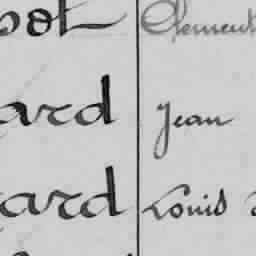 bot Clement
ard Jean
ard Louis